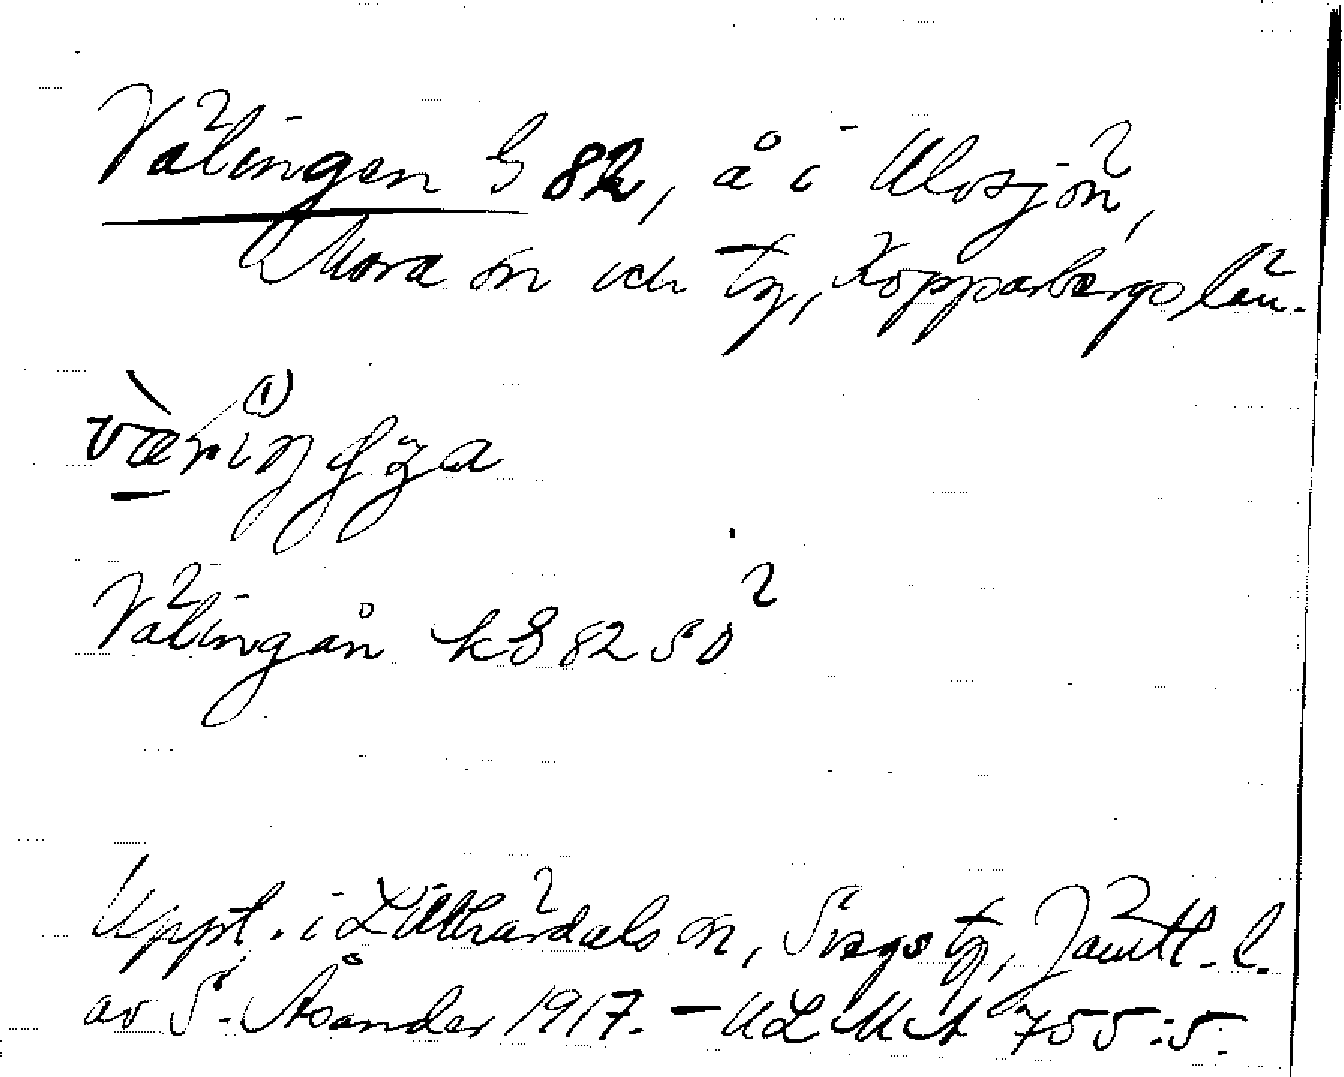 Välingen G 82, å i Ulvsjön,
Mora sn och tg, Kopparbergs län.
Välingån kG 82 SO
Uppt. i Lillhärdals sn, Svegs tg, Jämtl. l.
av S. Åsander 1917. – ULMA 755:5.